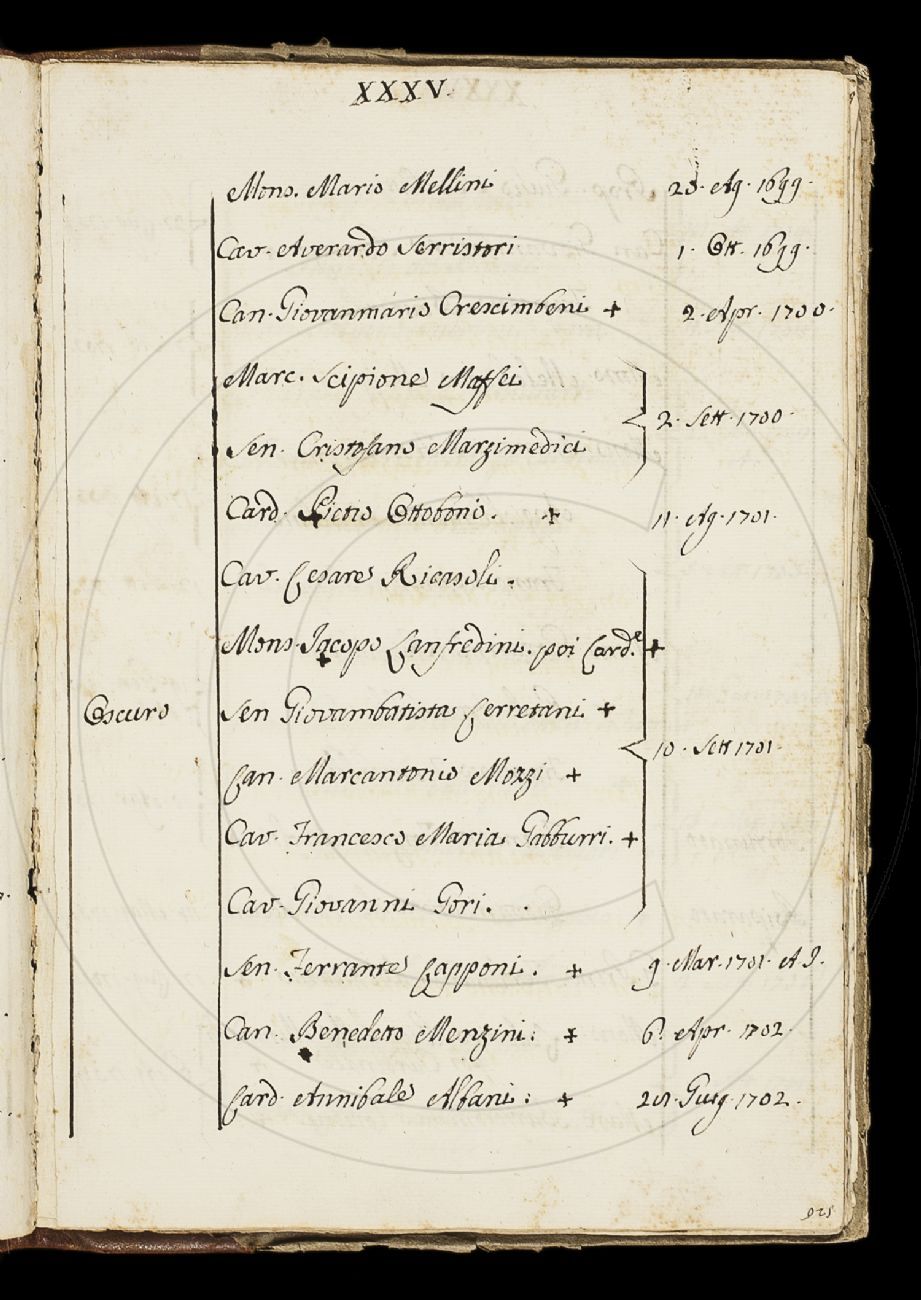 XXXV.
Mons. Mario Mellini 28. Ag. 1699.
Cav. Averardo Serristori 1. Ott. 1699.
Can. Giovanmario Crescimbeni + 2. Apr. 1700.
Marc. Scipione Maffei
2. Sett. 1700.
Sen. Cristofano Marzimedici
Card. Pietro Ottoboni. + 11. Ag. 1701.
Cav. Cesare Ricasoli.
Mons. Jacopo Lanfredini. poi Card.e +
Oscuro Sen Giovambatista Cerretani +
10. Sett 1701.
Can. Marcantonio Mozzi +
Cav. Francesco Maria Gabburri. +
Cav. Giovanni Gori.
Sen. Ferrante Capponi. + 9. Mar. 1701. A I.
Can. Benedetto Menzini: + 6. Apr. 1702.
Card. Annibale Albani: + Giug. 1702.